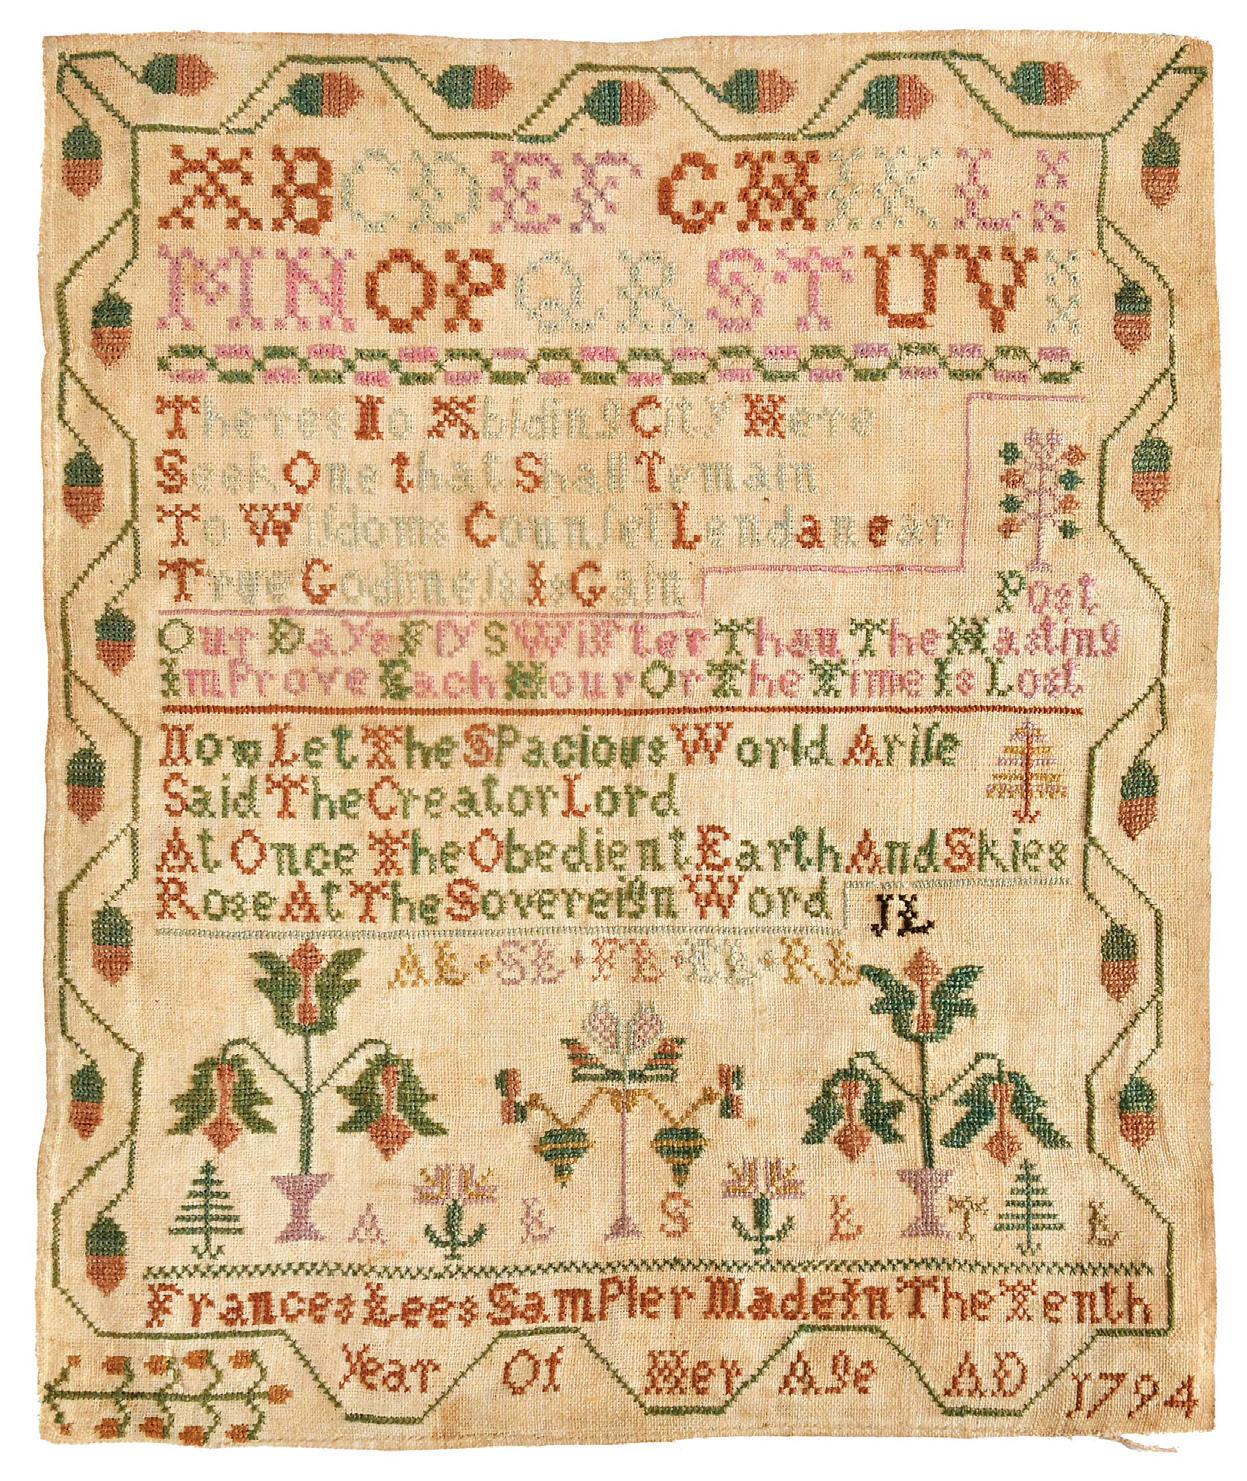 ABCDEF GHIKL
MNOPQRSTUV
Theres No Abiding City Here
Seek One that Shall remain
To Wiſdoms Counſel Lend an ear
True Godlineſs Is Gain
Post
Our Days Fly SWiFter Than The Hasting
ImProve Each Hour Or The Time Is Lost
Now Let The SPacious World Ariſe
Said The Creator Lord
At Once The Obedient Earth And Skies
Rose At The Sovereign Word
JL
AL+SL+FL+EL+RL
A L S L T L
Frances Lees SamPler Made In The Tenth
Year Of Her Age AD 1794